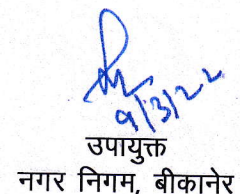 9/3/22
उपायुक्त
नगर निगम, बीकानेर